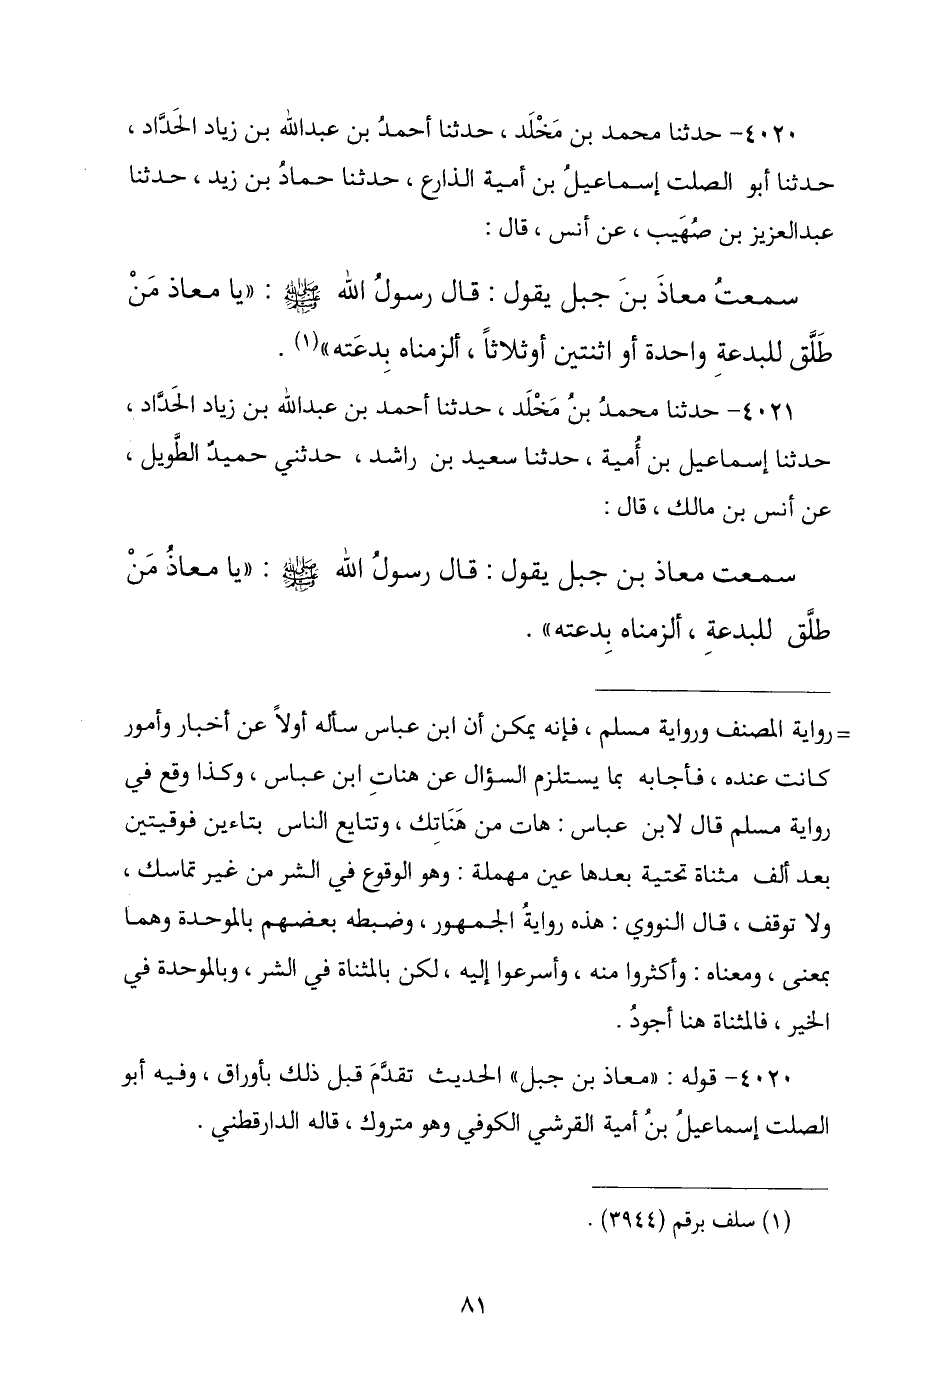 ٤٠٢٠- حدثنا محمد بن مَخْلَد ، حدثنا أحمدُ بن عبدالله بن زياد الحَدَّاد ،
حدثنا أبو الصلت إسماعيلُ بن أمية الذارع ، حدثنا حمادُ بن زيد ، حدثنا
عبدالعزيز بن صُهَيب ، عن أنس ، قال :
سمعتُ معاذَ بنَ جبل يقول : قال رسولُ الله ﷺ : «يا معاذ مَنْ
طَلَّق للبدعةِ واحدة أو اثنتين أوثلاثاً ، ألزمناه بِدعَته»(١) .
٤٠٢١- حدثنا محمدُ بنُ مَخْلَد ، حدثنا أحمد بن عبدالله بن زياد الحَدَّاد ،
حدثنا إسماعيل بن أُمية ، حدثنا سعيد بن راشد ، حدثني حميدٌ الطَّويل ،
عن أنس بن مالك ، قال :
سمعت معاذ بن جبل يقول : قال رسولُ الله ﷺ : «يا معاذُ مَنْ
طلَّق للبدعةِ ، ألزمناه بِدعته» .
=رواية المصنف ورواية مسلم ، فإنه يمكن أن ابن عباس سأله أولاً عن أخبار وأمور
كانت عنده ، فأجابه بما يستلزم السؤال عن هناتِ ابن عباس ، وكذا وقع في
رواية مسلم قال لابن عباس : هات من هَنَاتِك ، وتتايع الناس بتاءين فوقيتين
بعد ألف مثناة تحتية بعدها عين مهملة : وهو الوقوع في الشر من غير تماسك ،
ولا توقف ، قال النووي : هذه روايةُ الجمهور ، وضبطه بعضهم بالموحدة وهما
بمعنى ، ومعناه : وأكثروا منه ، وأسرعوا إليه ، لكن بالمثناة في الشر ، وبالموحدة في
الخير ، فالمثناة هنا أجودُ .
٤٠٢٠- قوله : «معاذ بن جبل» الحديث تقدَّمَ قبل ذلك بأوراق ، وفيه أبو
الصلت إسماعيلُ بنُ أمية القرشي الكوفي وهو متروك ، قاله الدارقطني .
(١) سلف برقم (٣٩٤٤) .
٨١